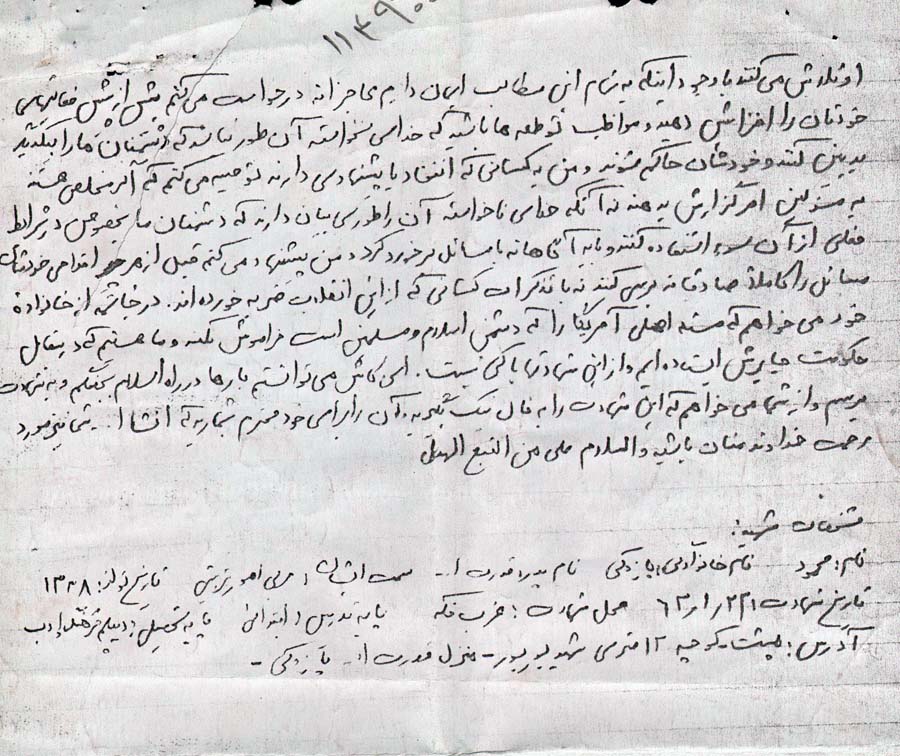 ۱۱۴۹۰۰
او تلاش می کنند با وجود اینکه به تمام این مطالب ایمان دارم عاجزانه درخواست می کنم بیش از پیش فعالیتهای
خودتان را افزایش دهید و مواظب توطعه ها باشید که خدای نخواسته آن طور نباشد که دشمنان ما را بیکدیگر
بدبین کنند و خودشان حاکم شوند و من به کسانی که انتقاد یا پیشنهادی دارند توصیه می کنم که اگر مخلص هستند
به مسئولین امر گزارش بدهند نه آنکه خدای ناخواسته آن را طوری بیان دارند که دشمنان ما بخصوص در شرایط
فعلی از آن سوء استفاده کنند و باید آگاهانه با مسائل برخورد کرد و من پیشنهاد می کنم قبل از هر اقدامی خودشان
مسائل را کاملا صادقانه بررسی کنند نه با تذکرات کسانی که از این انقلاب ضربه خورده اند. در خاتمه از خانواده
خود می خواهم که مسئله اصلی آمریکا را که دشمن اسلام و مسلمین است فراموش نکنند و ما هستیم که در مقابل
حکومت جابرش ایستاده ایم و از این شهادتها باکی نیست. ای کاش می توانستم بارها در راه اسلام بجنگم و به شهادت
برسم و از شما می خواهم که این شهادت را به فال نیک بگیرید و آن را برای خود محترم بشمارید که انشا ا... شما نیز مورد
رحمت خداوند منان باشید والسلام علی من التبع الهدی
مشخصات شهید:
نام: محمود نام خانوادگی: پازوکی نام پدر: قدرت ا... سمت ایشان: مربی امور تربیتی تاریخ تولد: ۱۳۳۸
تاریخ شهادت ۶۲/۱/۲۲ محل شهادت: غرب فکه پایه تدریس: ابتدائی پایه تحصیلی: دیپلم فرهنگ و ادب
آدرس: کوچه ۱۲ متری شهید - منزل قدرت ا... پازوکی -